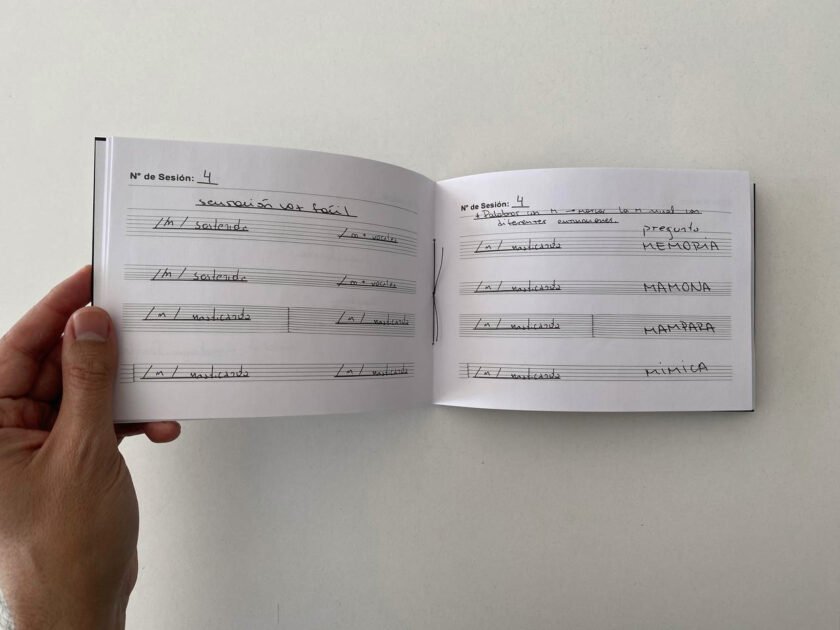 N° de Sesión: 4
sensación voz fácil
/m/ sostenido
/m + vocales
/m/ sostenido
/m + vocales
/m/ masticando
/m/ masticando
/m/ masticando
/m/ masticando
N° de Sesión: 4
+ Palabras con M → notar la M nasal con
diferentes entonaciones.
pregunta
/m/ masticando
MEMORIA
/m/ masticando
MAMONA
/m/ masticando
MAMPARA
/m/ masticando
MÍMICA